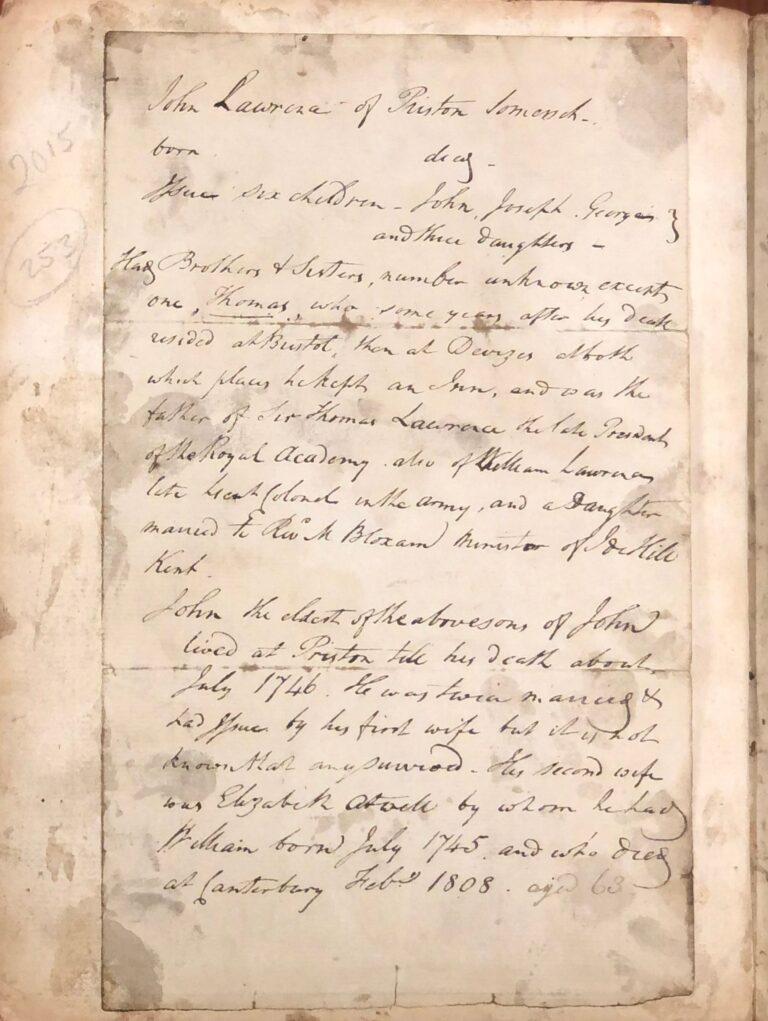 John Lawrence of Priston Somerset -
born died -
Issue six children - John, Joseph, George
and three daughters -
Had Brothers & Sisters, number unknown except
one, Thomas, who some years after his death
resided at Bristol, then at Devizes at both
which places he kept an Inn, and was the
father of Sir Thomas Lawrence the late President
of the Royal Academy also of William Lawrence
late Lieut Colonel in the army, and a Daughter
married to Revd M Bloxam Minister of
Kent
John the eldest of the above sons of John
lived at Priston till his death about
July 1746. He was twice married &
had Issue by his first wife but it is not
known that any survived - His second wife
was Elizabeth Atwell by whom he had
William born July 1745 and who died
at Canterbury Feby 1808. aged 63 -
2015
253